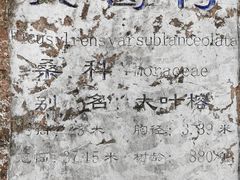 cus virens var sublanceolata
桑科 Moraceae
别名 大叶榕
23米 胸径: 3.89米
37.15米 树龄: 880